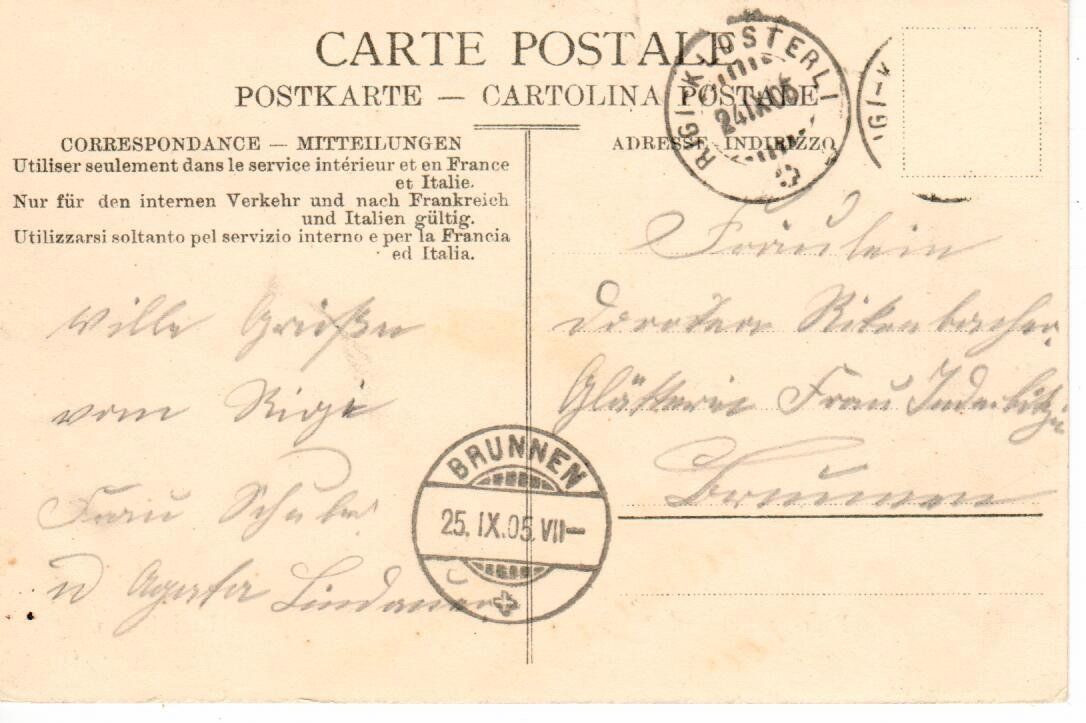 CARTE POSTALE
POSTKARTE — CARTOLINA POSTALE
CORRESPONDANCE — MITTEILUNGEN
Utiliser seulement dans le service intérieur et en France
et Italie.
Nur für den internen Verkehr und nach Frankreich
und Italien gültig.
Utilizzarsi soltanto pel servizio interno e per la Francia
ed Italia.
ville Grüße
vom Rigi
Frau Schuler
u Agatha Lindauer
ADRESSE — INDIRIZZO
RIGI-KLÖSTERLI
24 IX 05
RIGI-K
Fräulein
Rikenbacher
Glätterin Frau Inderbitzin
Brunnen
BRUNNEN
25. IX. 05. VII—